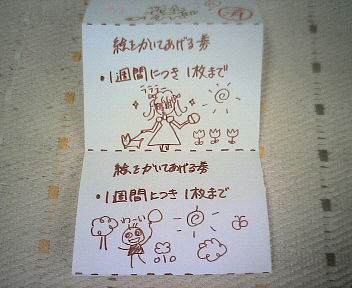 絵をかいてあげる券
・1週間につき1枚まで
ラララ〜
絵をかいてあげる券
・1週間につき1枚まで
わーい